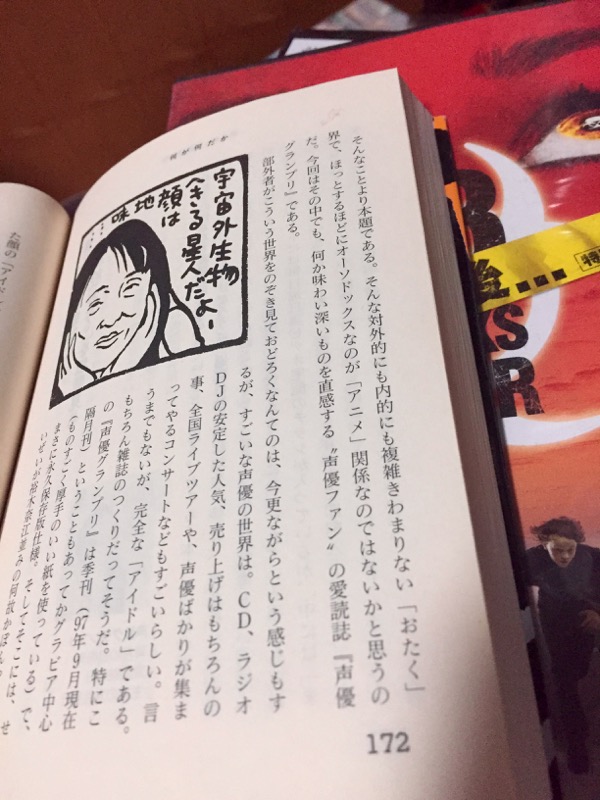 何が何だか
そんなことより本題である。そんな対外的にも内的にも複雑きわまりない「おたく」
界で、ほっとするほどにオーソドックスなのが「アニメ」関係なのではないかと思うの
だ。今回はその中でも、何か味わい深いものを直感する〝声優ファン〟の愛読誌『声優
グランプリ』である。
部外者がこういう世界をのぞき見ておどろくなんてのは、今更ながらという感じもす
るが、すごいな声優の世界は。CD、ラジオ
DJの安定した人気、売り上げはもちろんの
事、全国ライブツアーや、声優ばかりが集ま
ってやるコンサートなどもすごいらしい。言
うまでもないが、完全な「アイドル」である。
もちろん雑誌のつくりだってそうだ。特にこ
の『声優グランプリ』は季刊（97年9月現在
隔月刊）ということもあってかグラビア中心
（ものすごく厚手のいい紙を使っている）で、
まさに永久保存版仕様。そしてそこには、せ
いぜいが裕木奈江並みの何故か
宇宙外生物
へきる星人だよー
顔は
地
味
172
た顔の「アイド
特
S
R